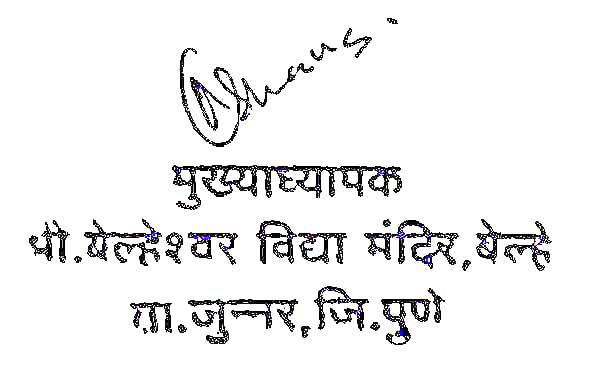 मुख्याध्यापक
श्री. बेल्हेश्वर विद्या मंदिर, बेल्हे
ता. जुन्नर, जि. पुणे